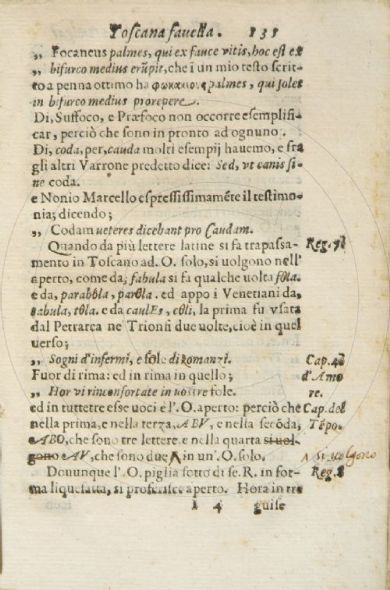 Toscana favella. 135
„ Focaneus palmes, qui ex fauce vitis, hoc est ex
„ bifurco medius erũpit, che ĩ un mio testo scrit-
to a penna ottimo ha φωκακιους palmes, qui solet
in bifurco medius prorepere.
Di, Suffoco, e Præfoco non occorre esemplifi-
car, perciò che sono in pronto ad ognuno.
Di, coda, per, cauda molti esempij havemo, e fra
gli altri Varrone predetto dice: Sed, vt canis si-
ne coda.
e Nonio Marcello espressissimamẽte il testimo-
nia; dicendo;
„ Codam veteres dicebant pro Caudam.
Quando da più lettere latine si fa trapassa-
mento in Toscano ad. O. solo, si uolgono nell'
aperto, come da, fabula si fa qualche uolta fola.
e da, parabola, parola. ed appo i Venetiani da,
tabula, tola. e da caulEs, coli, la prima fu vsata
dal Petrarca ne Trionfi due volte, cioè in quel
verso;
„ Sogni d'infermi, e fole di Romanzi.
Fuor di rima: ed in rima in quello;
„ Hor vi riconfortate in vostre fole.
ed in tuttetre esse voci e l'. O. aperto: perciò che
nella prima, e nella terza, ABV, e nella secõda,
ABO, che sono tre lettere e nella quarta si uol-
gono AV, che sono due in un'. O. solo.
Douunque l'. O. piglia sotto di se. R. in for-
ma liquefatta, si proferisce aperto. Hora in tre
I 4 guise
Cap.
d'Amo
re.
Cap. del
Tẽpo.
si uolgono
Reg. 8